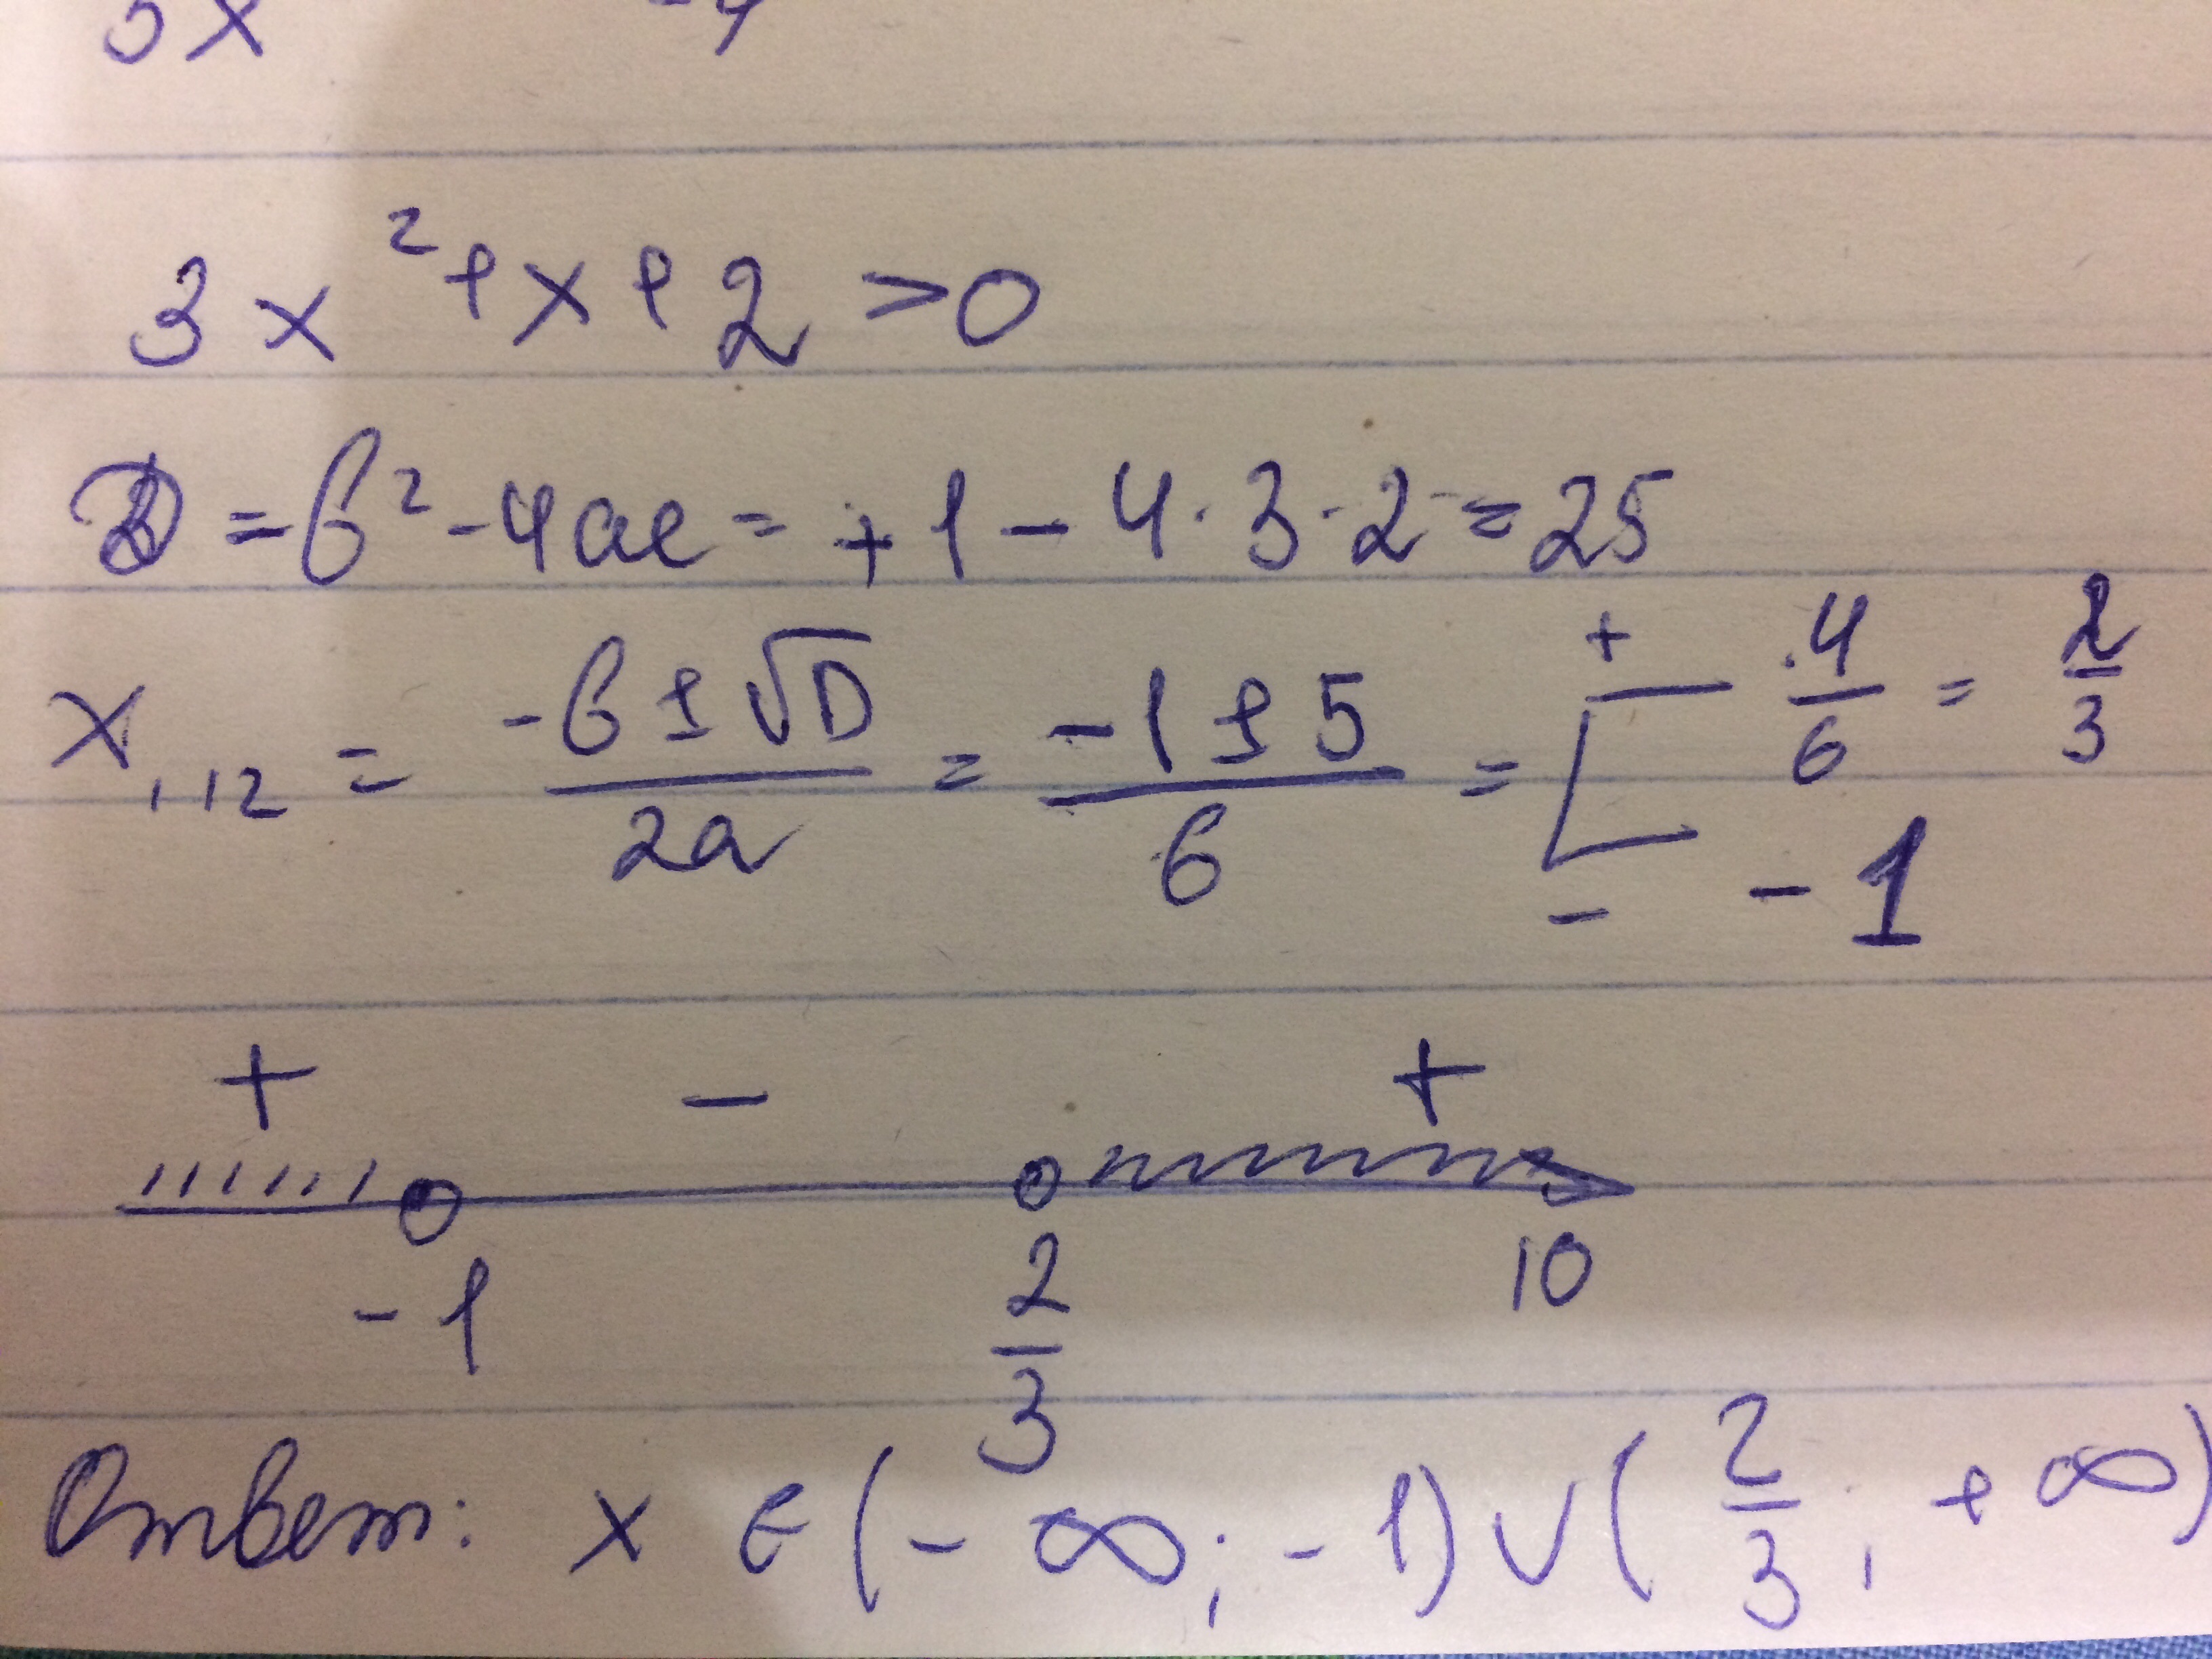 3x² + x + 2 > 0
D = b² - 4ac = +1 - 4 · 3 · 2 = 25
x₁,₂ = (-b ± √D)/2a = (-1 ± 5)/6 = [ + 4/6 = 2/3
- -1
+ - +
-1 2/3 10
Ответ: x ∈ (-∞; -1) ∪ (2/3; +∞)